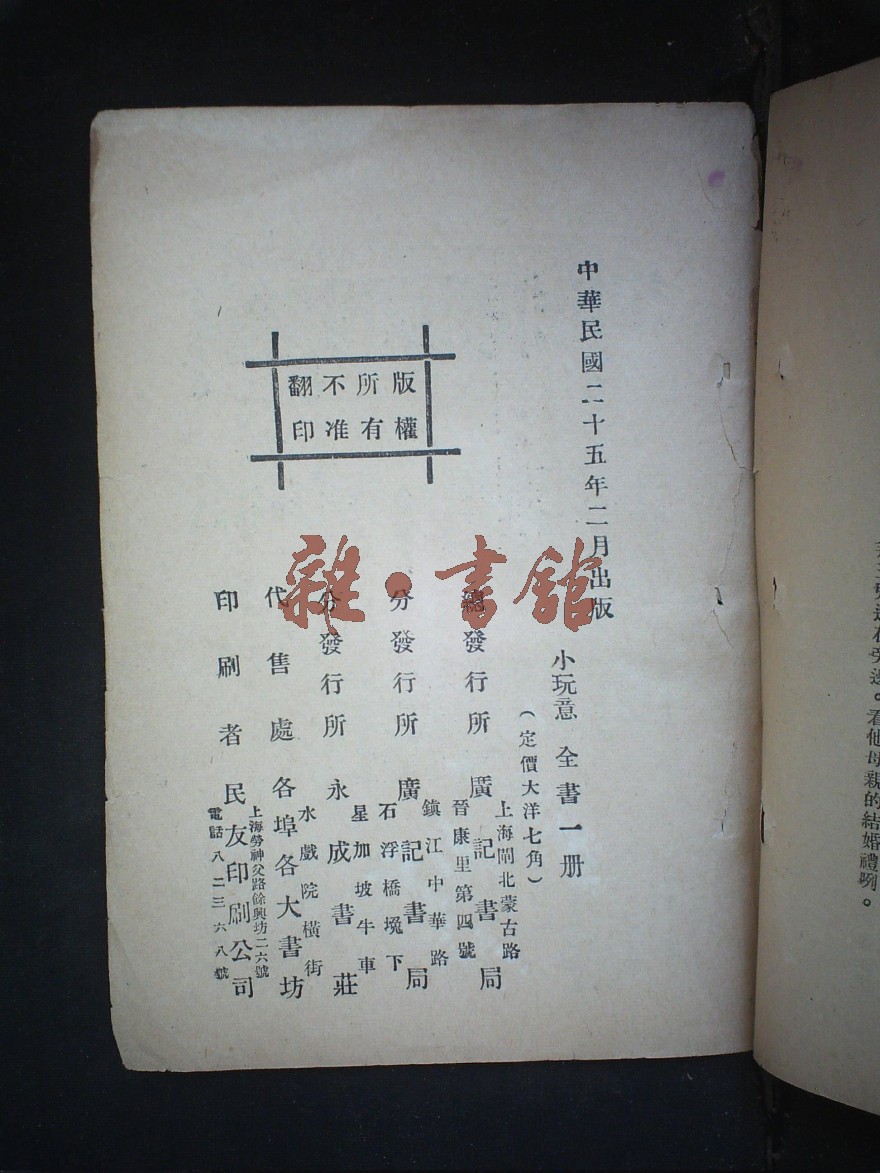 中華民國二十五年二月出版
小玩意 全書一册
(定價大洋七角)
總發行所 廣記書局
上海閘北蒙古路
晉康里第四號
分發行所 廣記書局
鎭江中華路
石浮橋堍下
分發行所 永成書莊
星加坡牛車
水戲院橫街
代售處 各埠各大書坊
印刷者 民友印刷公司
上海勞神父路餘興坊二六號
電話八二三六八號
版權
所有
不准
翻印
雜·書館
在旁邊。看他母親的結婚禮咧。